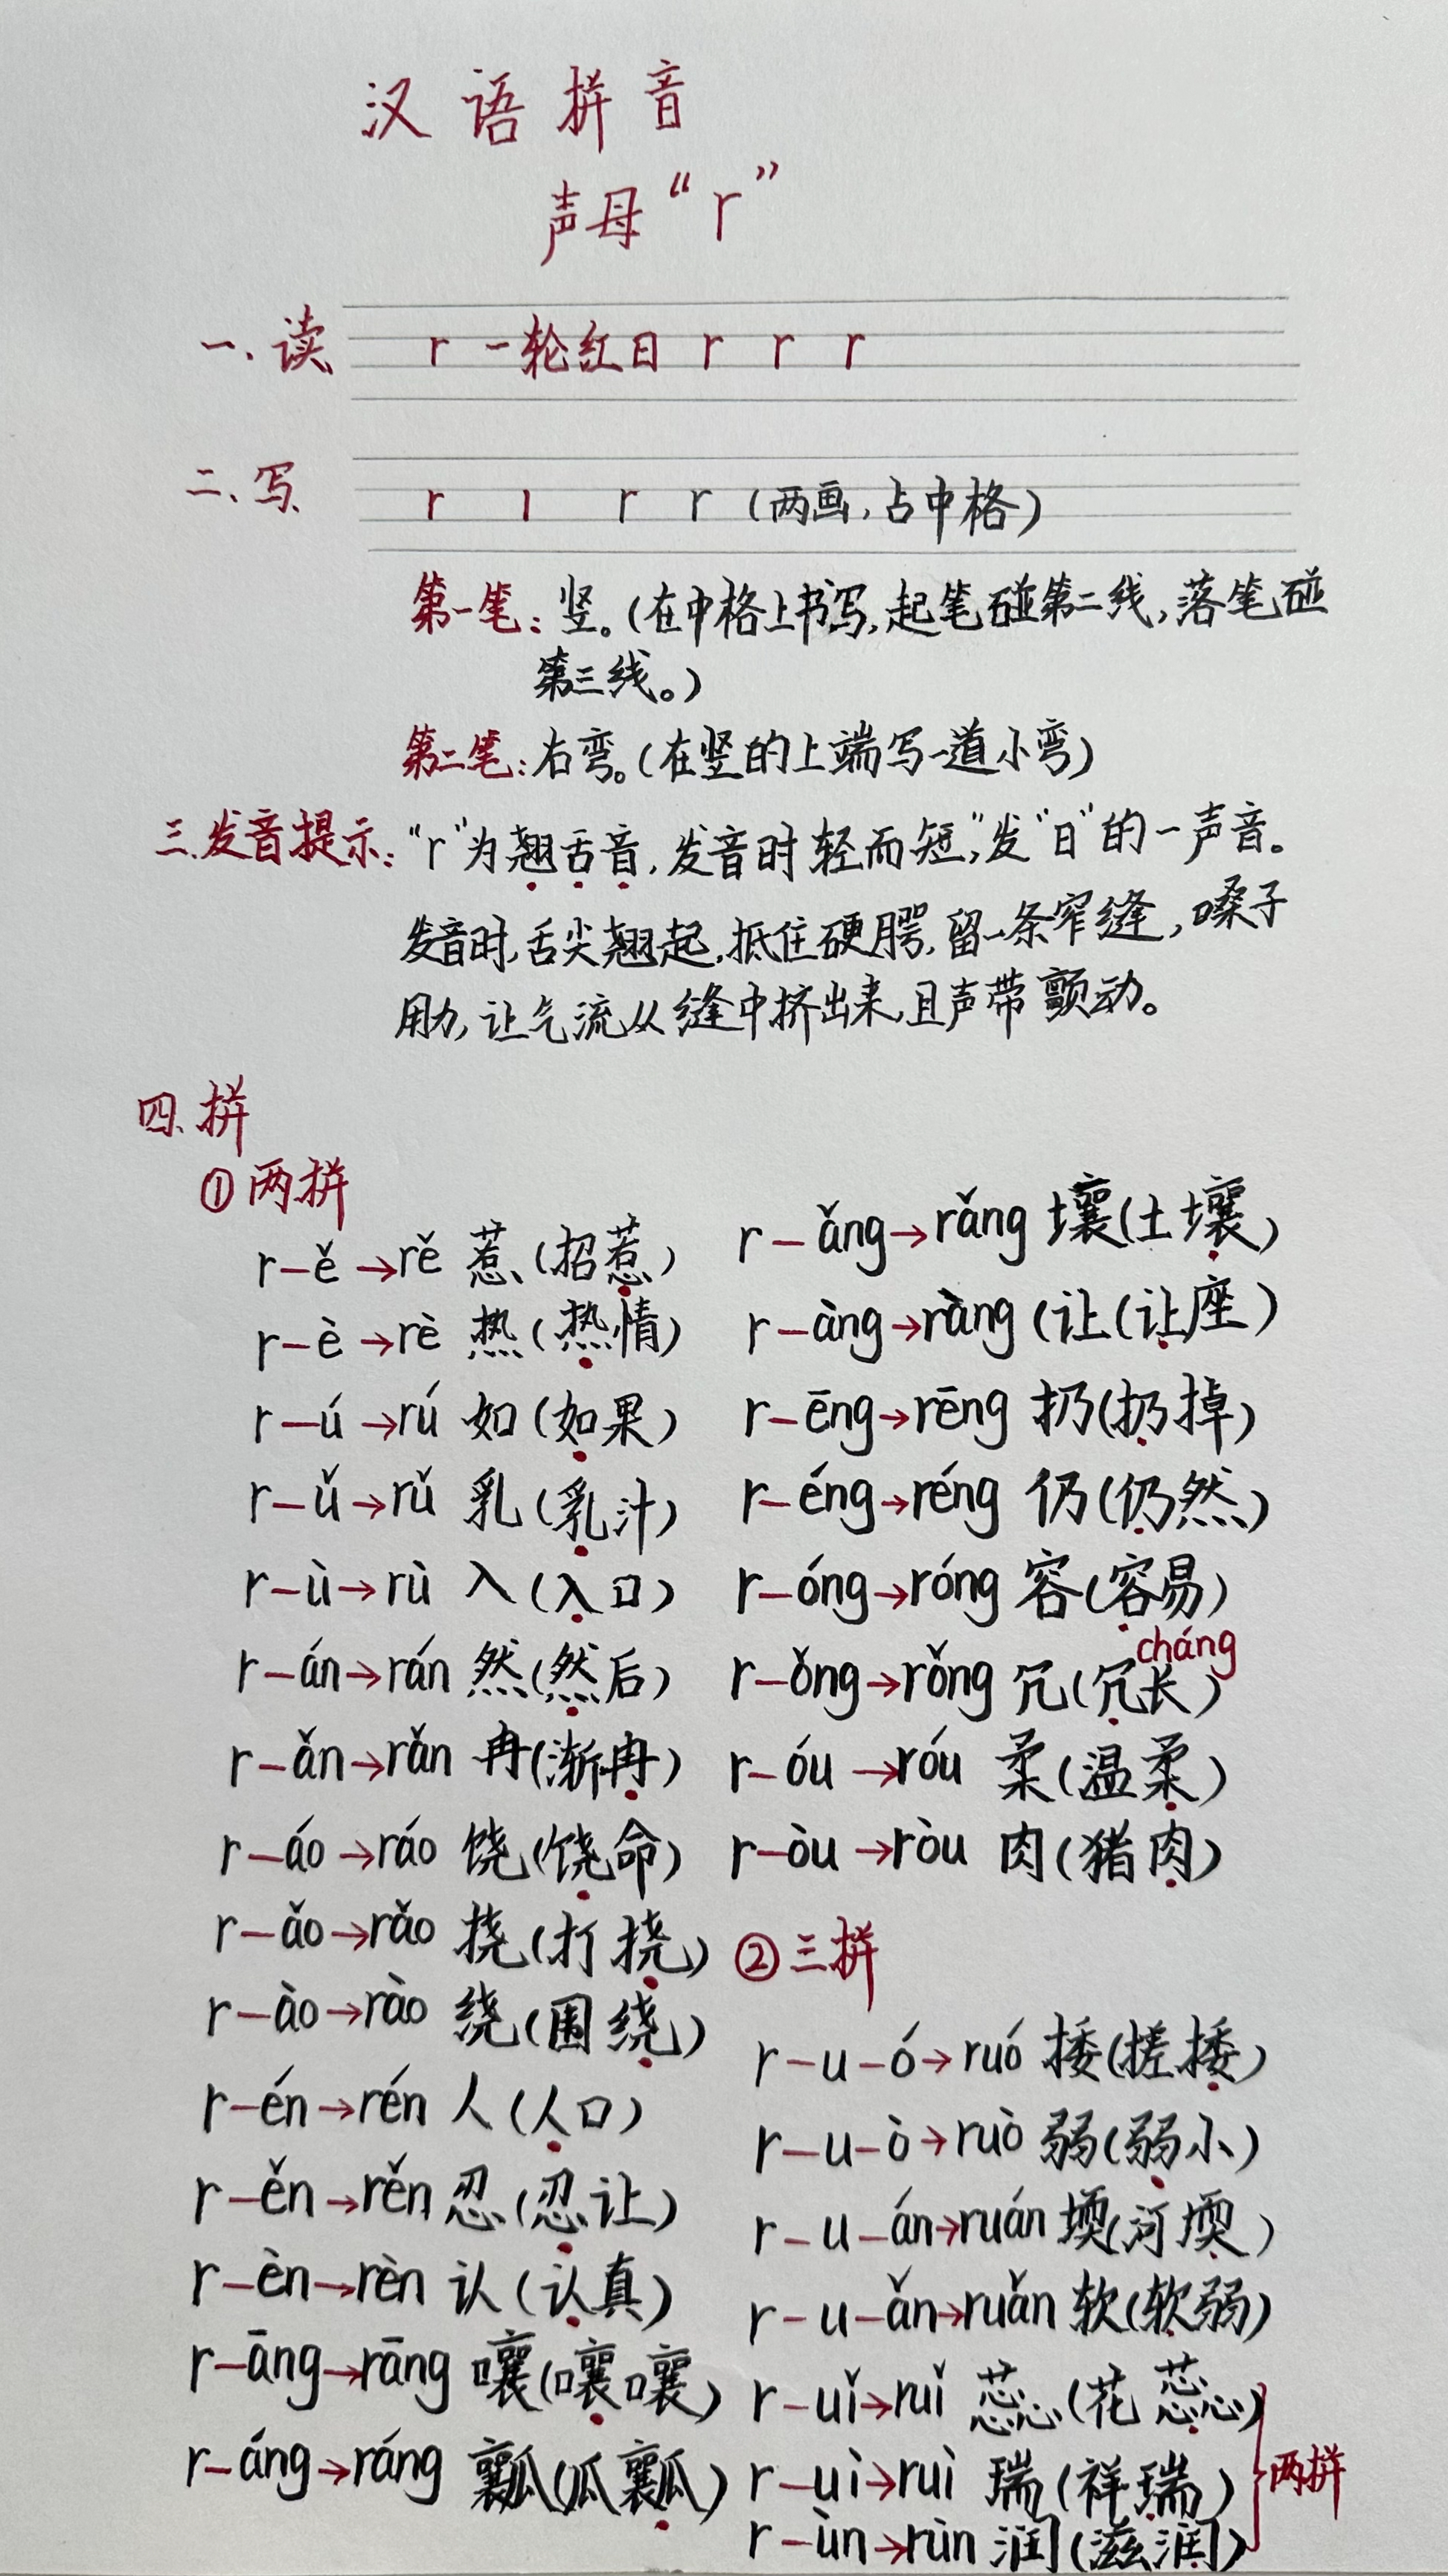 汉语拼音
声母“r”
一.读 r 一轮红日 r r r
二、写 r ı r r (两画,占中格)
第一笔:竖。(在中格上书写,起笔碰第二线,落笔碰
第三线。)
第二笔:右弯。(在竖的上端写一道小弯)
三.发音提示:“r”为翘舌音,发音时轻而短,”发“日”的一声音。
发音时,舌尖翘起,抵住硬腭,留一条窄缝,嗓子
用力,让气流从缝中挤出来,且声带颤动。
四、拼
①两拼
r–ě→rě 惹(招惹)
r–è→rè 热(热情)
r–ú→rú 如(如果)
r–ǔ→rǔ 乳(乳汁)
r–ù→rù 入(入口)
r–án→rán 然(然后)
r–ǎn→rǎn 冉(渐冉)
r–áo→ráo 饶(饶命)
r–ǎo→rǎo 挠(打挠)
r–ào→rào 绕(围绕)
r–én→rén 人(人口)
r–ěn→rěn 忍(忍让)
r–èn→rèn 认(认真)
r–āng→rāng 嚷(嚷嚷)
r–áng→ráng 瓤(瓜瓤)
r–ǎng→rǎng 壤(土壤)
r–àng→ràng (让(让座)
r–ēng→rēng 扔(扔掉)
r–éng→réng 仍(仍然)
r–óng→róng 容(容易)
cháng
r–ǒng→rǒng 冗(冗长)
r–óu→róu 柔(温柔)
r–òu→ròu 肉(猪肉)
②三拼
r–u–ó→ruó 捼(搓捼)
r–u–ò→ruò 弱(弱小)
r–u–án→ruán 堧(河堧)
r–u–ǎn→ruǎn 软(软弱)
r–uǐ→ruǐ 蕊(花蕊)
r–uì→ruì 瑞(祥瑞)
两拼
r–ùn→rùn 润(滋润)